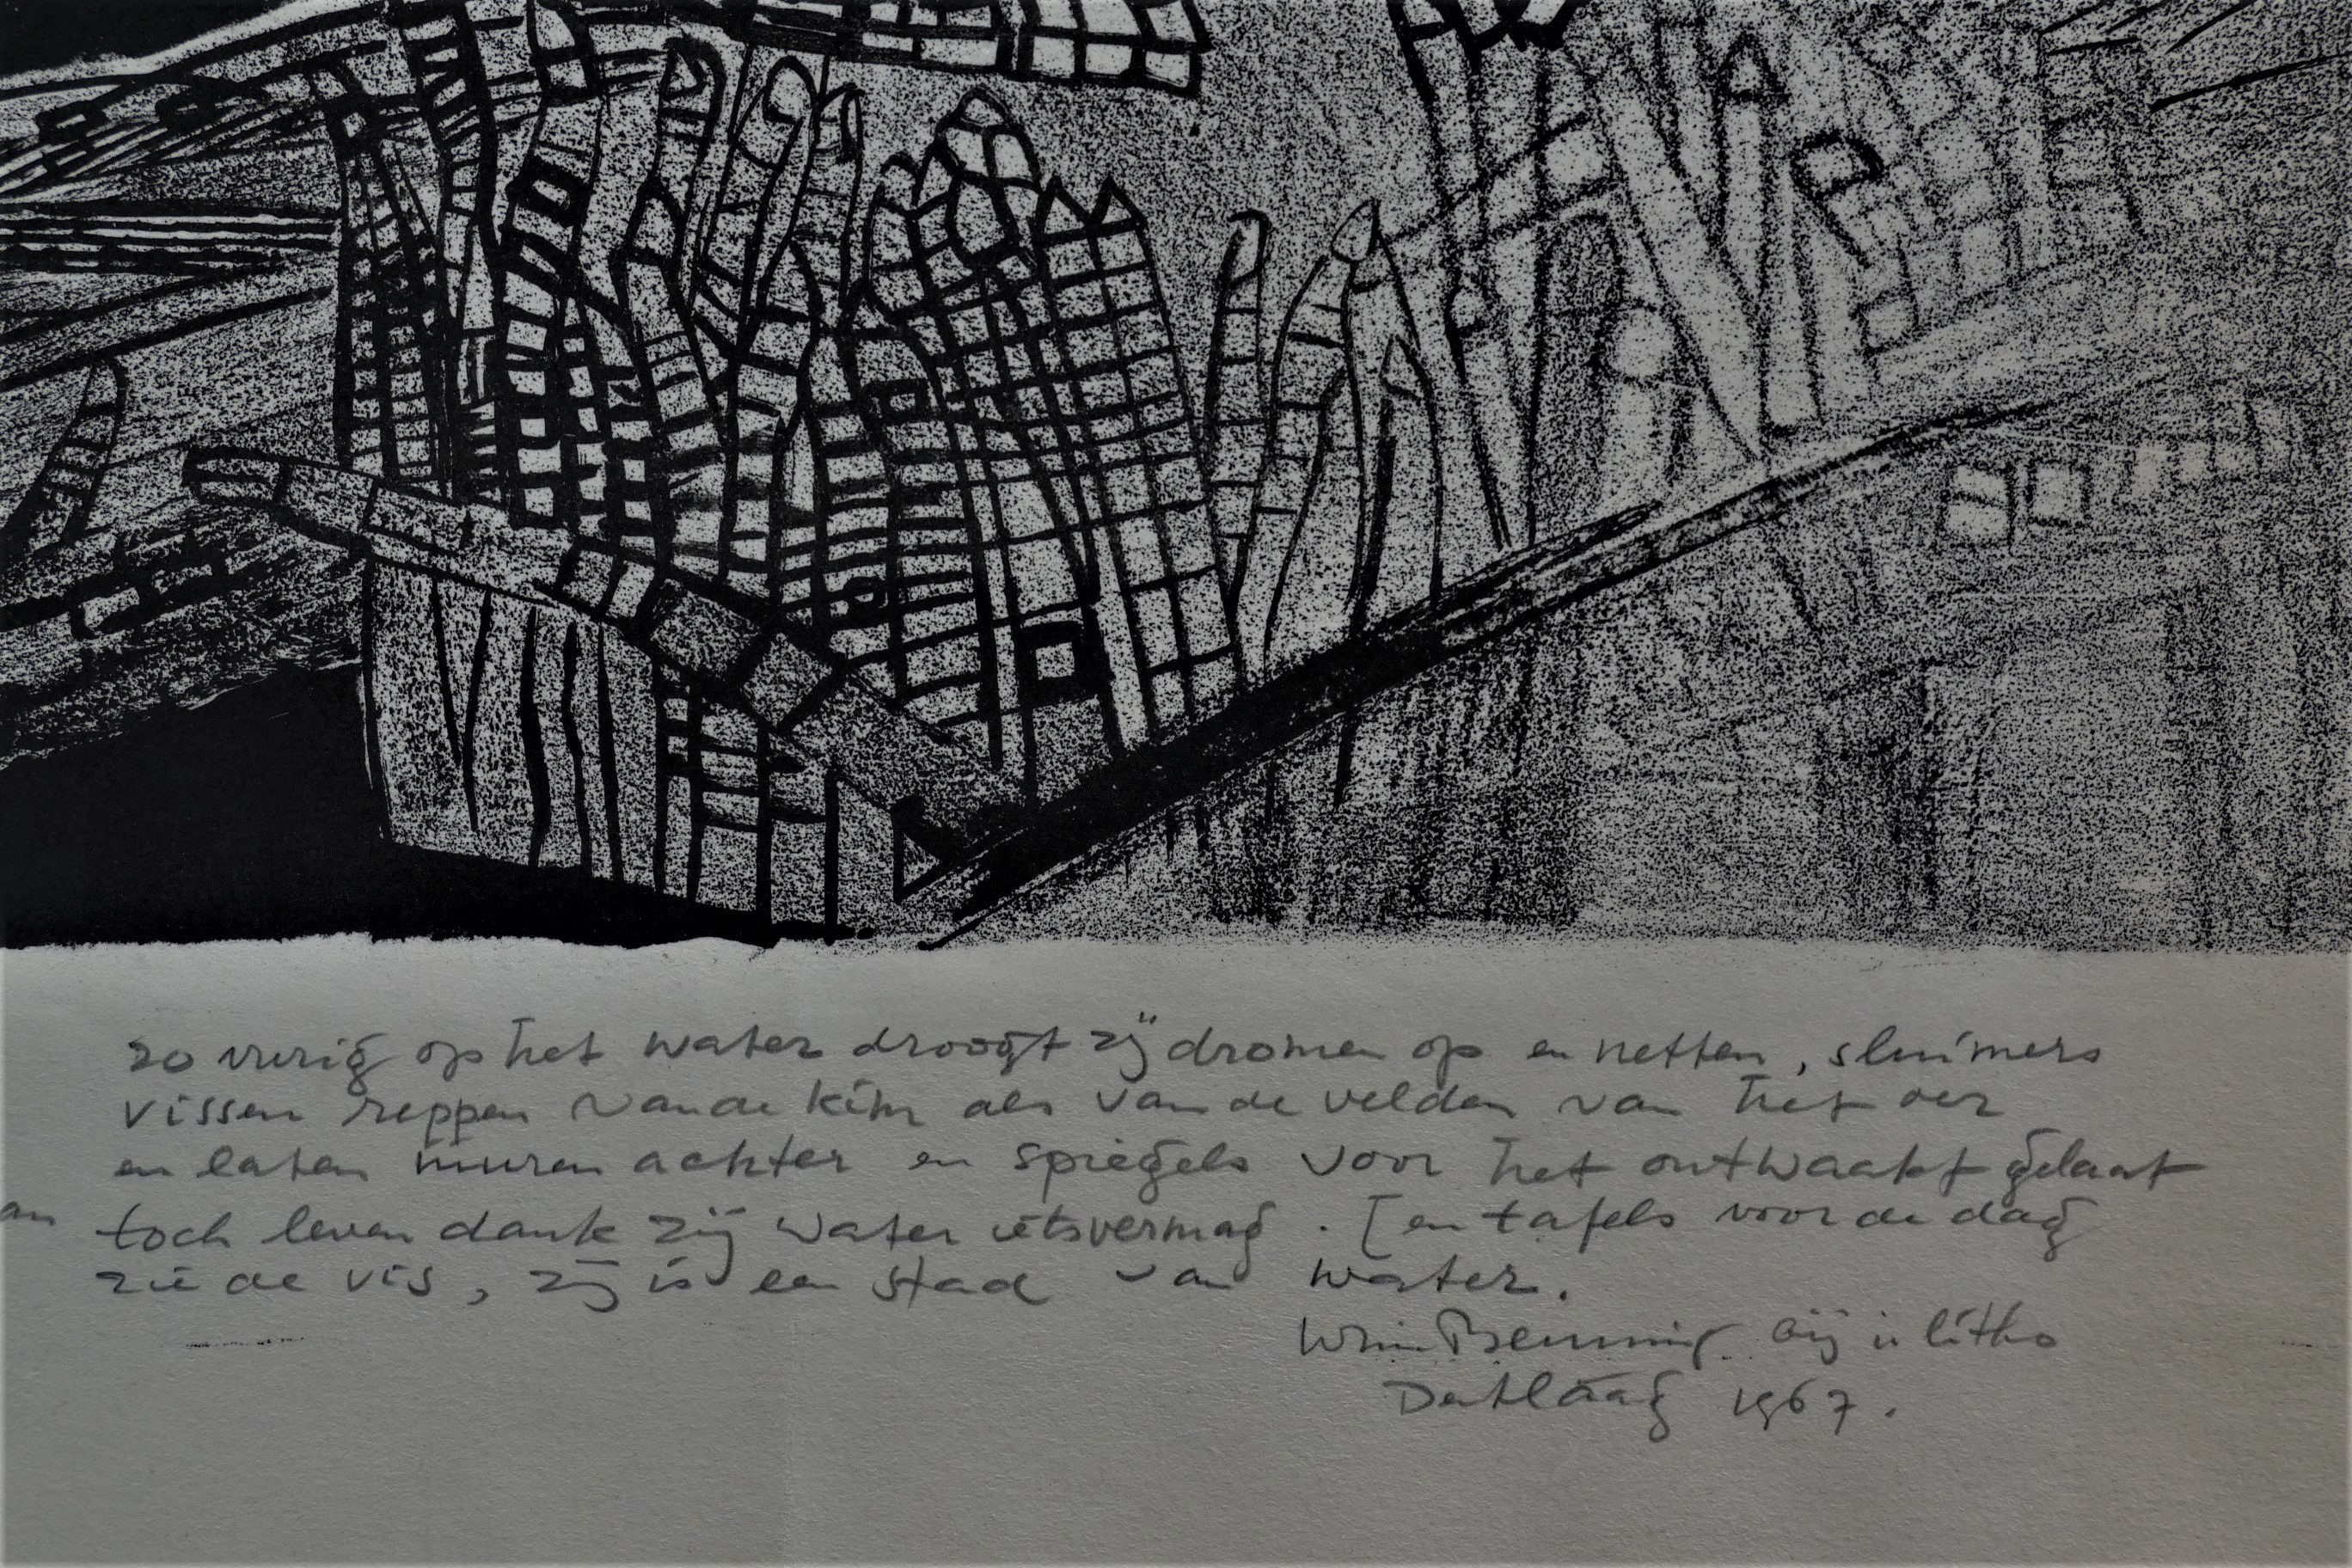 zo vurig op het water droogt zij dromen op en netten, sluimers
vissen reppen van de kim als van de velden van het oer
en laten muren achter en spiegels voor het ontwaakt gelaat
toch leven dank zij water iets vermag. [en tafels voor de dag
zie de vis, zij is een stad van water.
Wim bij litho
1967.